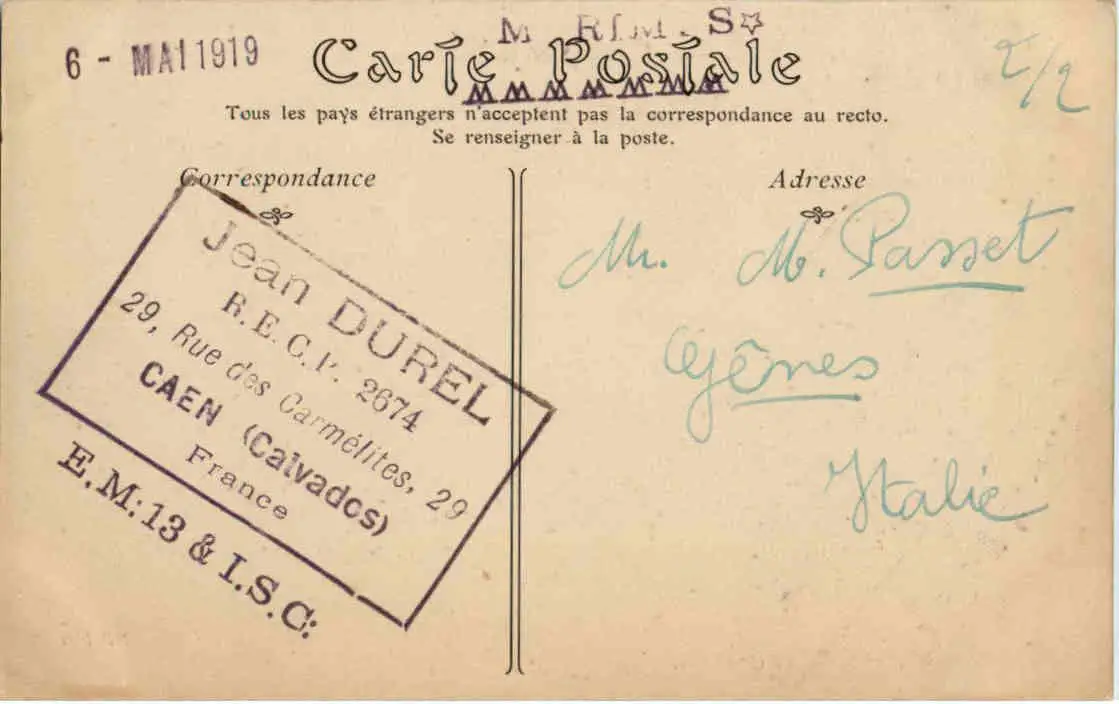 6 - MAI 1919
Carte Postale
Tous les pays étrangers n'acceptent pas la correspondance au recto.
Se renseigner à la poste.
2/2
Correspondance
Jean DUREL
R.E.C.P. 2674
29, Rue des Carmélites, 29
CAEN (Calvados)
France
E.M: 13 & I.S.C:
Adresse
Mr. M. Passet
Gênes
Italie